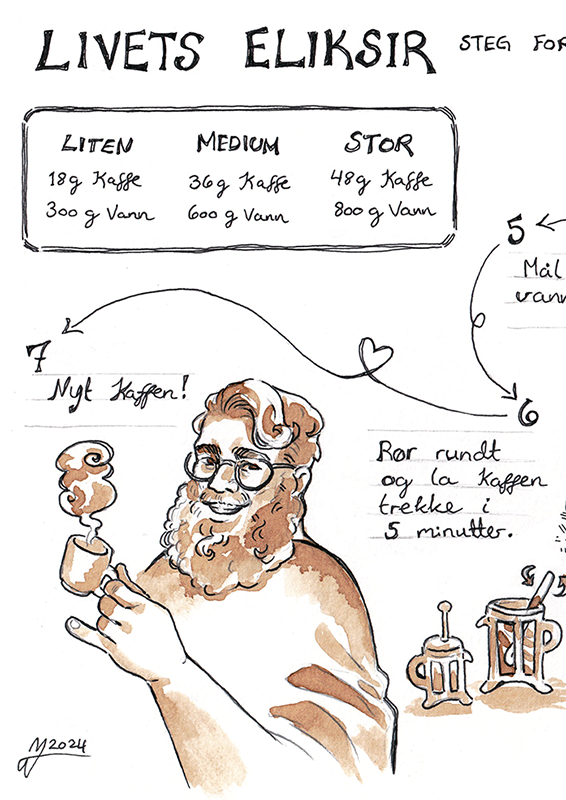 LIVETS ELIKSIR STEG FOR
LITEN
18g Kaffe
300 g Vann
MEDIUM
36g Kaffe
600 g Vann
STOR
48g Kaffe
800 g Vann
5
Mål
vann
6
Rør rundt
og la Kaffen
trekke i
5 minutter.
7
Nyt Kaffen!
5
2024